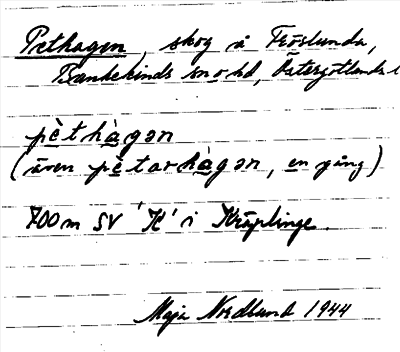 Pethagen, skog å Fröslunda,
Bankekinds sn o hd, Östergötlands l
pèthàgən
(även pètərhàgən, en gång)
700 m SV 'K' i Kräplinge.
Maja Nordlund 1944